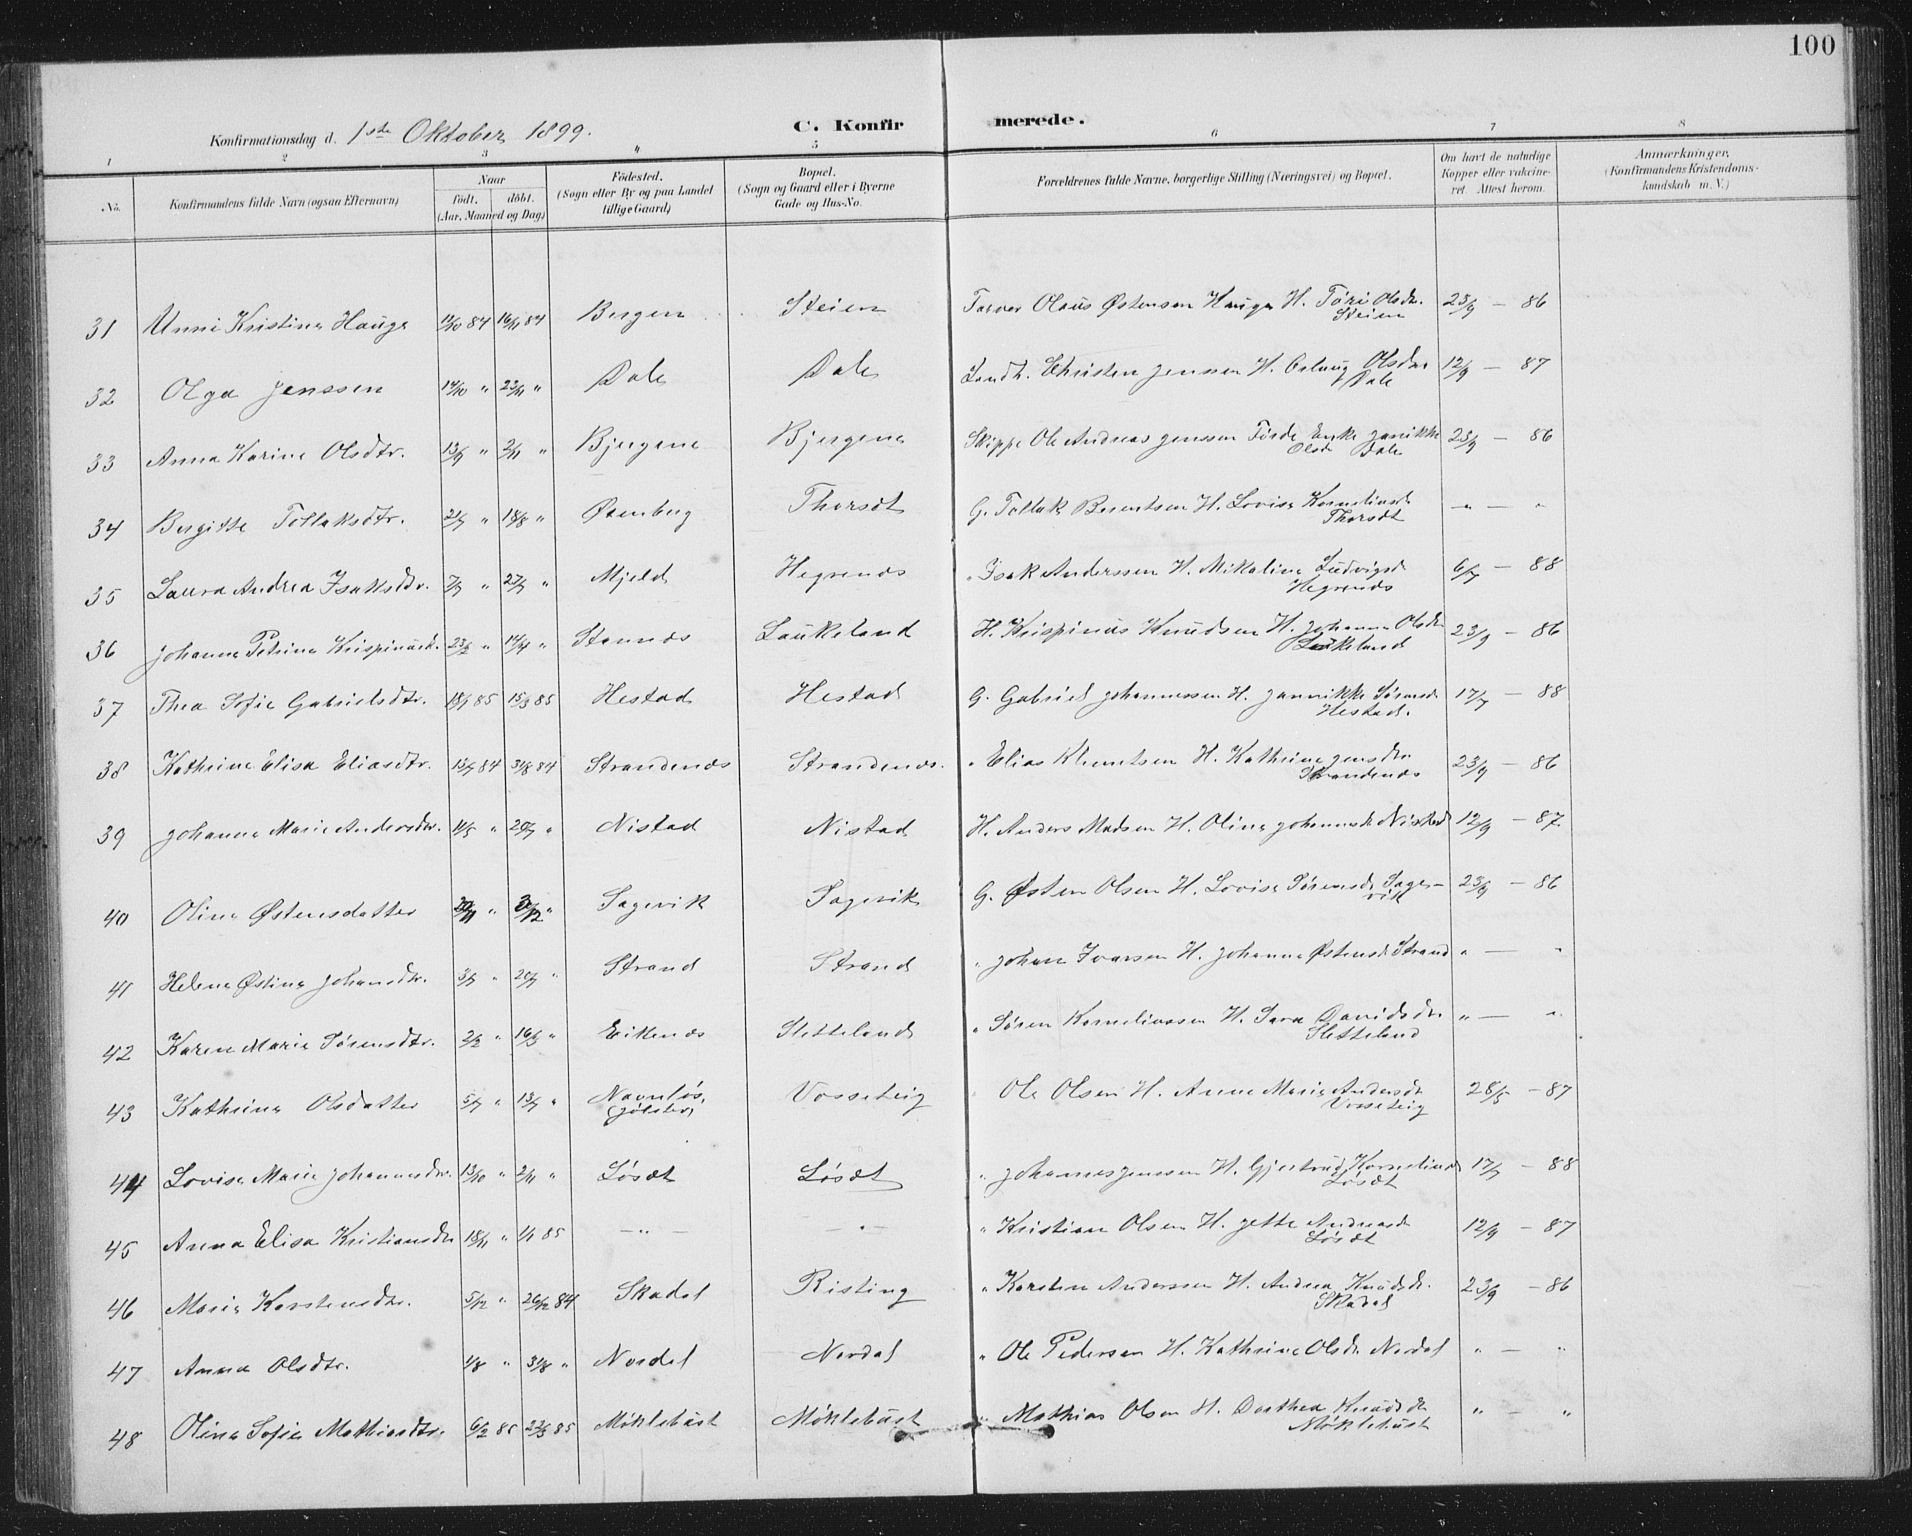 100
Konfirmationsdag d. 1ste Oktober 1899. C. Konfirmerede.
1 2 3 4 5 6 7 8
No. Konfirmandens fulde Navn (ogsaa Efternavn) Naar født. døbt. (Aar, Maaned og Dag) Fødested. (Sogn eller By og paa Landet tillige Gaard) Bopæl. (Sogn og Gaard eller i Byerne Gade og Hus-No. Forældrenes fulde Navne, borgerlige Stilling (Næringsvei) og Bopæl. Om havt de naturlige Kopper eller vakcineret. Attest herom. Anmærkninger, (Konfirmandens Kristendomskundskab m. V.)
31 Unni Kristine Hauge 11/10 84 16/11 84 Bergen Steien Farver Olaus Østensen Hauge H. Töri Olsdr. Steien 23/9 — 86
32 Olga Jenssen 14/10 " 23/11 " Dale Dale Landh. Christen Jenssen H. Oslaug Olsdtr Dale 12/9 — 87
33 Anna Karine Olsdtr. 13/9 " 2/11 " Bjergene Bjergene Skipper Ole Andreas Jenssen Förde Enke Janikke Olsdr Dale 23/9 — 86
34 Bergitte Tollaksdtr. 21/7 " 18/8 " Ösenberg Thorsdt G. Tollak Berentsen H. Lovise Korneliusdr Thorsdt " — "
35 Laura Andrea Isaksdtr. 7/7 " 27/7 " Mjeld Hegrenæs " Isak Anderssen H. Mikaline Ludvigsd Hegrenæs 6/7 — 88
36 Johanne Petrine Krispinusdr. 23/2 " 14/4 " Stannæs Laukeland H. Krispinus Knudsen H. Johanne Olsdr Laukeland 23/9 — 86
37 Thea Sofie Gabrielsdtr. 18/1 85 15/3 85 Hestad Hestad G. Gabriel Johannessen H. Jannikke Sørensd Hestad. 17/7 — 88
38 Kathrine Elisa Eliasdtr. 13/7 84 31/8 84 Strandenæs Strandenæs. " Elias Klemetsen H. Kathrine Jensdtr Strandenæs 23/9 — 86
39 Johanne Marie Andersdtr. 11/5 " 20/7 " Nistad Nistad H. Anders Madsen H. Oline Johannsdr Nistad 12/9 — 87.
40 Oline Østensdatter 30/11 " " Sagevik Sagevik G. Østen Olsen H. Lovise Sørensdr Sagevik 23/9 — 86
41 Helene Østine Johansdtr. 3/7 " 20/7 " Strand Strand " Johan Ivarsen H. Johanne Østensdr Strand " — "
42 Karen Marie Sørensdtr. 2/2 " 16/3 " Eikenæs Sletteland " Søren Korneliussen H. Sara Davidsdtr Sletteland " — "
43 Kathrine Olsdatter 5/7 " 13/7 " Navnløs, (Jölster) Vosseteig Ole Olsen H. Anne Marie Andersdt Vosseteig 28/5 — 87
44 Lovise Marie Johannesdtr. 13/10 " 2/11 " Løsdt Løsdt " Johannes Jenssen H. Gjertrud Kornelius Løsdt 17/7 — 88
45 Anna Elisa Kristiansdtr 18/11 " 1/1 85 — " — — " — " Kristian Olsen H. Jette Andreasdr Løsdt 12/9 — 87
46 Marie Karstensdtr. 5/12 " 26/12 84 Skadal Risting " Karsten Anderssen H. Andrea Knudsdr. Skadal 23/9 — 86
47 Anna Olsdtr. 1/8 " 31/8 " Nordal Nordal " Ole Pedersen H. Kathrine Olsdr Nordal " — "
48 Oline Sofie Mathiasdtr. 6/2 85 22/3 85 Møklebust Møklebust " Mathias Olsen H. Dorthea Knudsdr Møklebust " — "